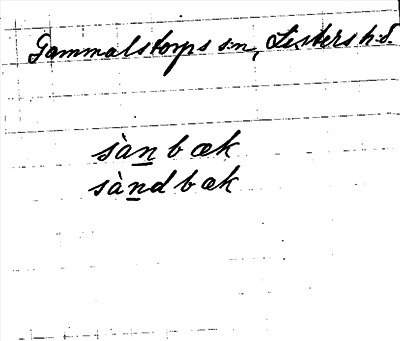 Gammalstorps sn, Listers hd.
sàn̲bæk
sàn̲dbæk